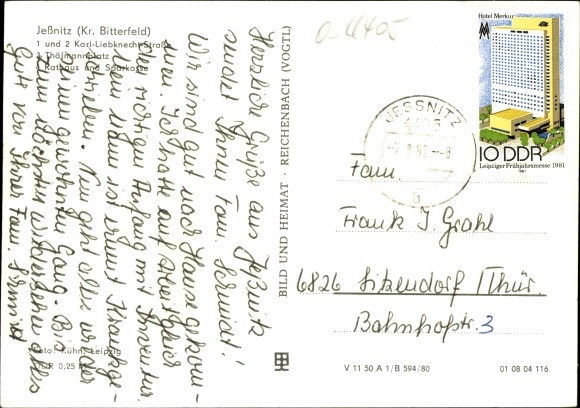 Jeßnitz (Kr. Bitterfeld)
1 und 2 Karl-Liebknecht-Straße
3 Thälmannplatz
4 Rathaus und Sparkasse
0-4405
Herzliche Grüße aus Jeßnitz
sendet Ihnen Fam. Schmidt!
Wir sind gut nach Hause gekom-
men. Ich hatte auf Arbeit gleich
den richtigen Anfang mit Inventur.
ist erneut Krankge-
schrieben. Nun geht alles wieder
seinen gewohnten Gang. Bis
zum nächsten Wiedersehen alles
Gute von Ihrer Fam. Schmidt
Foto: Kühn, Leipzig
DDR 0,25 M
BILD UND HEIMAT · REICHENBACH (VOGTL)
JESSNITZ
4405
82
-8
b
Hotel Merkur
MM
10 DDR
Leipziger Frühjahrsmesse 1981
1981
Fam.
Frank J. Grahl
6826 Sitzendorf /Thür.
Bahnhofstr. 3
V 11 50 A 1/B 594/80
01 08 04 116